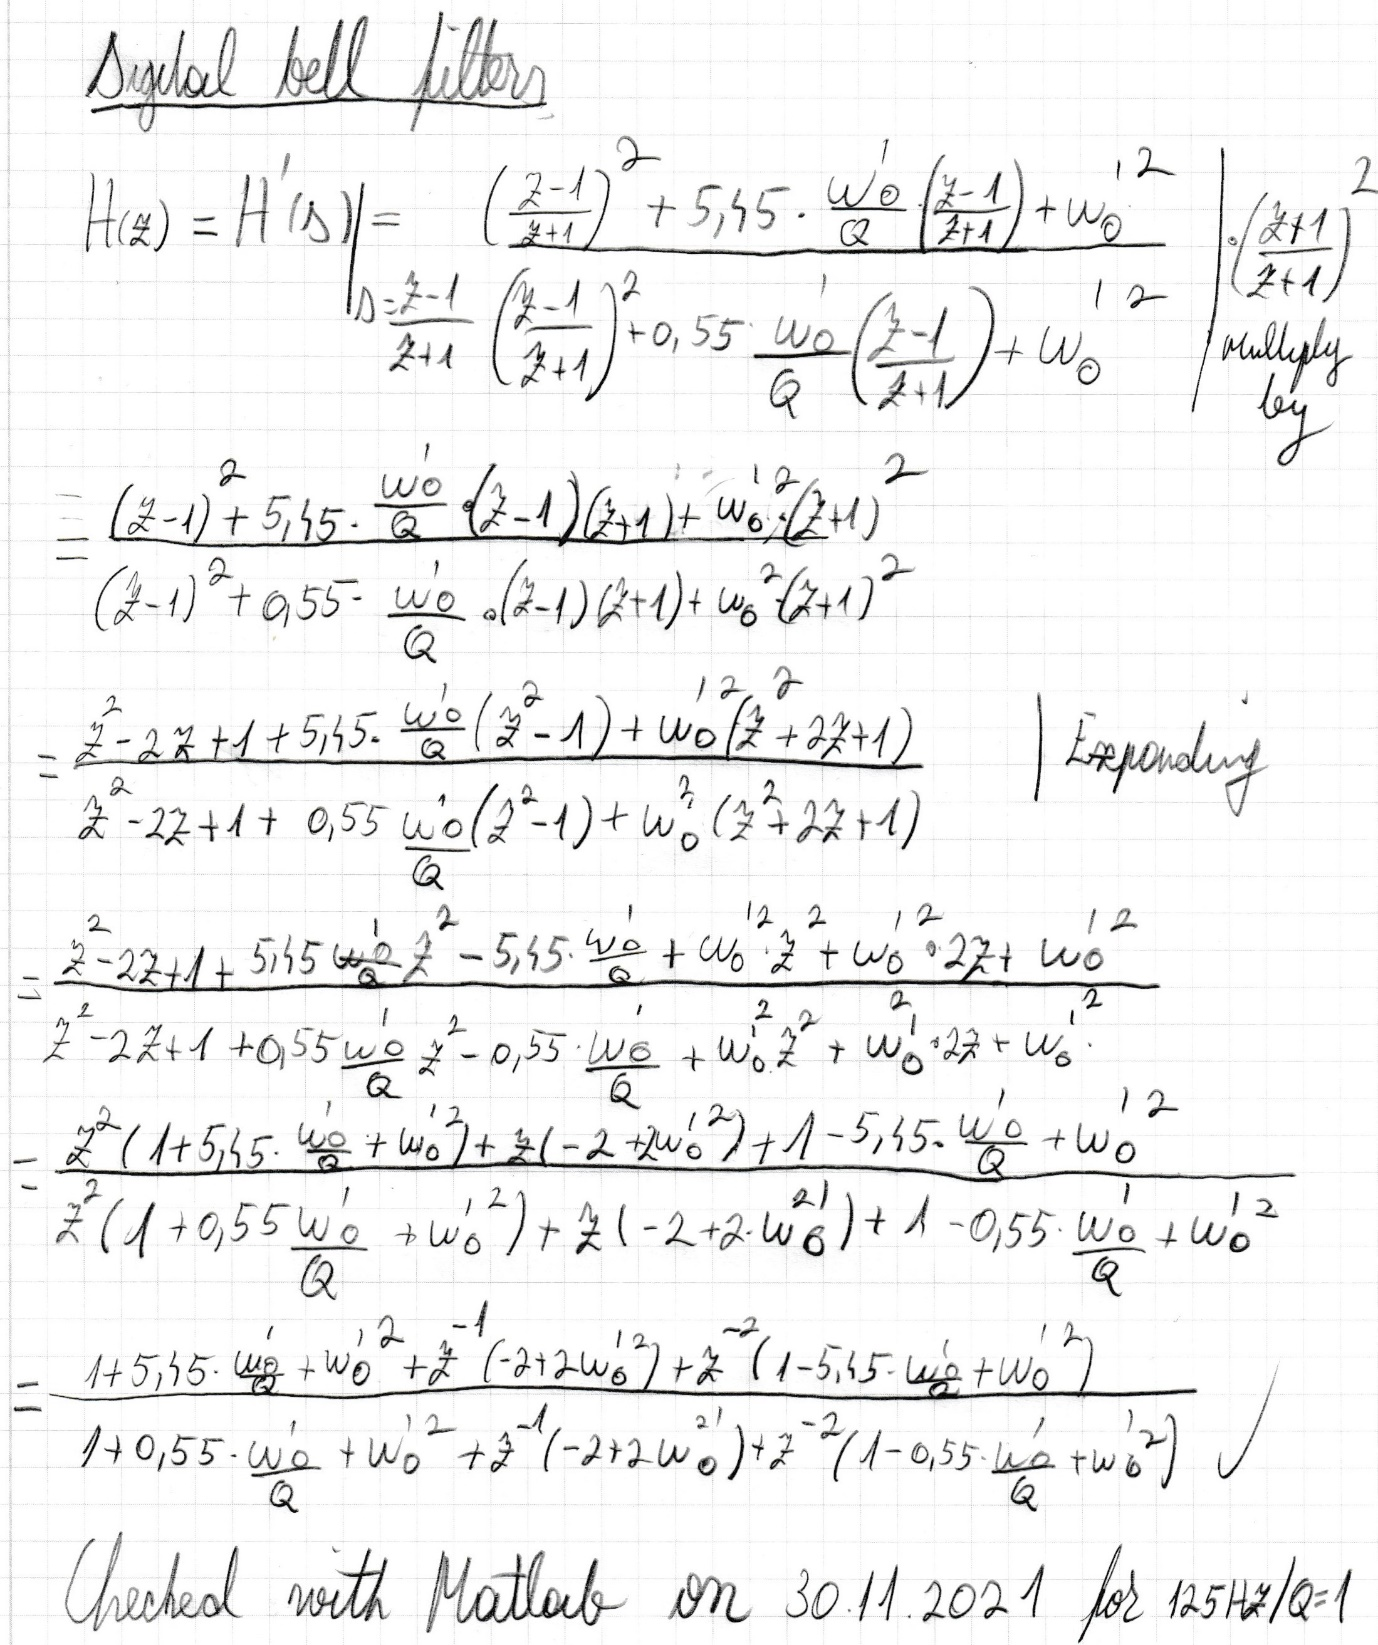 Digital bell filters
H(z) = H'(s)|_{s=\frac{z-1}{z+1}} = \frac{(\frac{z-1}{z+1})^2 + 5,45 \cdot \frac{ω_0'}{Q} \cdot (\frac{z-1}{z+1}) + ω_0'^2}{(\frac{z-1}{z+1})^2 + 0,55 \cdot \frac{ω_0'}{Q} (\frac{z-1}{z+1}) + ω_0'^2} | \cdot (\frac{z+1}{z+1})^2 multiply by
= \frac{(z-1)^2 + 5,45 \cdot \frac{ω_0'}{Q} \cdot (z-1)(z+1) + ω_0'^2 \cdot (z+1)^2}{(z-1)^2 + 0,55 \cdot \frac{ω_0'}{Q} \cdot (z-1)(z+1) + ω_0^2 \cdot (z+1)^2}
= \frac{z^2 - 2z + 1 + 5,45 \cdot \frac{ω_0'}{Q} (z^2-1) + ω_0'^2 (z^2+2z+1)}{z^2 - 2z + 1 + 0,55 \frac{ω_0'}{Q} (z^2-1) + ω_0'^2 (z^2+2z+1)} | Expanding
= \frac{z^2 - 2z + 1 + 5,45 \frac{ω_0'}{Q} z^2 - 5,45 \cdot \frac{ω_0'}{Q} + ω_0'^2 \cdot z^2 + ω_0'^2 \cdot 2z + ω_0'^2}{z^2 - 2z + 1 + 0,55 \frac{ω_0'}{Q} z^2 - 0,55 \cdot \frac{ω_0'}{Q} + ω_0'^2 \cdot z^2 + ω_0'^2 \cdot 2z + ω_0'^2}
= \frac{z^2 (1 + 5,45 \cdot \frac{ω_0'}{Q} + ω_0'^2) + z(-2 + 2ω_0'^2) + 1 - 5,45 \cdot \frac{ω_0'}{Q} + ω_0'^2}{z^2 (1 + 0,55 \frac{ω_0'}{Q} + ω_0'^2) + z(-2 + 2 \cdot ω_0'^2) + 1 - 0,55 \cdot \frac{ω_0'}{Q} + ω_0'^2}
= \frac{1 + 5,45 \cdot \frac{ω_0'}{Q} + ω_0'^2 + z^{-1} (-2 + 2ω_0'^2) + z^{-2} (1 - 5,45 \cdot \frac{ω_0'}{Q} + ω_0'^2)}{1 + 0,55 \cdot \frac{ω_0'}{Q} + ω_0'^2 + z^{-1} (-2 + 2ω_0'^2) + z^{-2} (1 - 0,55 \cdot \frac{ω_0'}{Q} + ω_0'^2)} ✓
Checked with Matlab on 30.11.2021 for 125HZ/Q=1